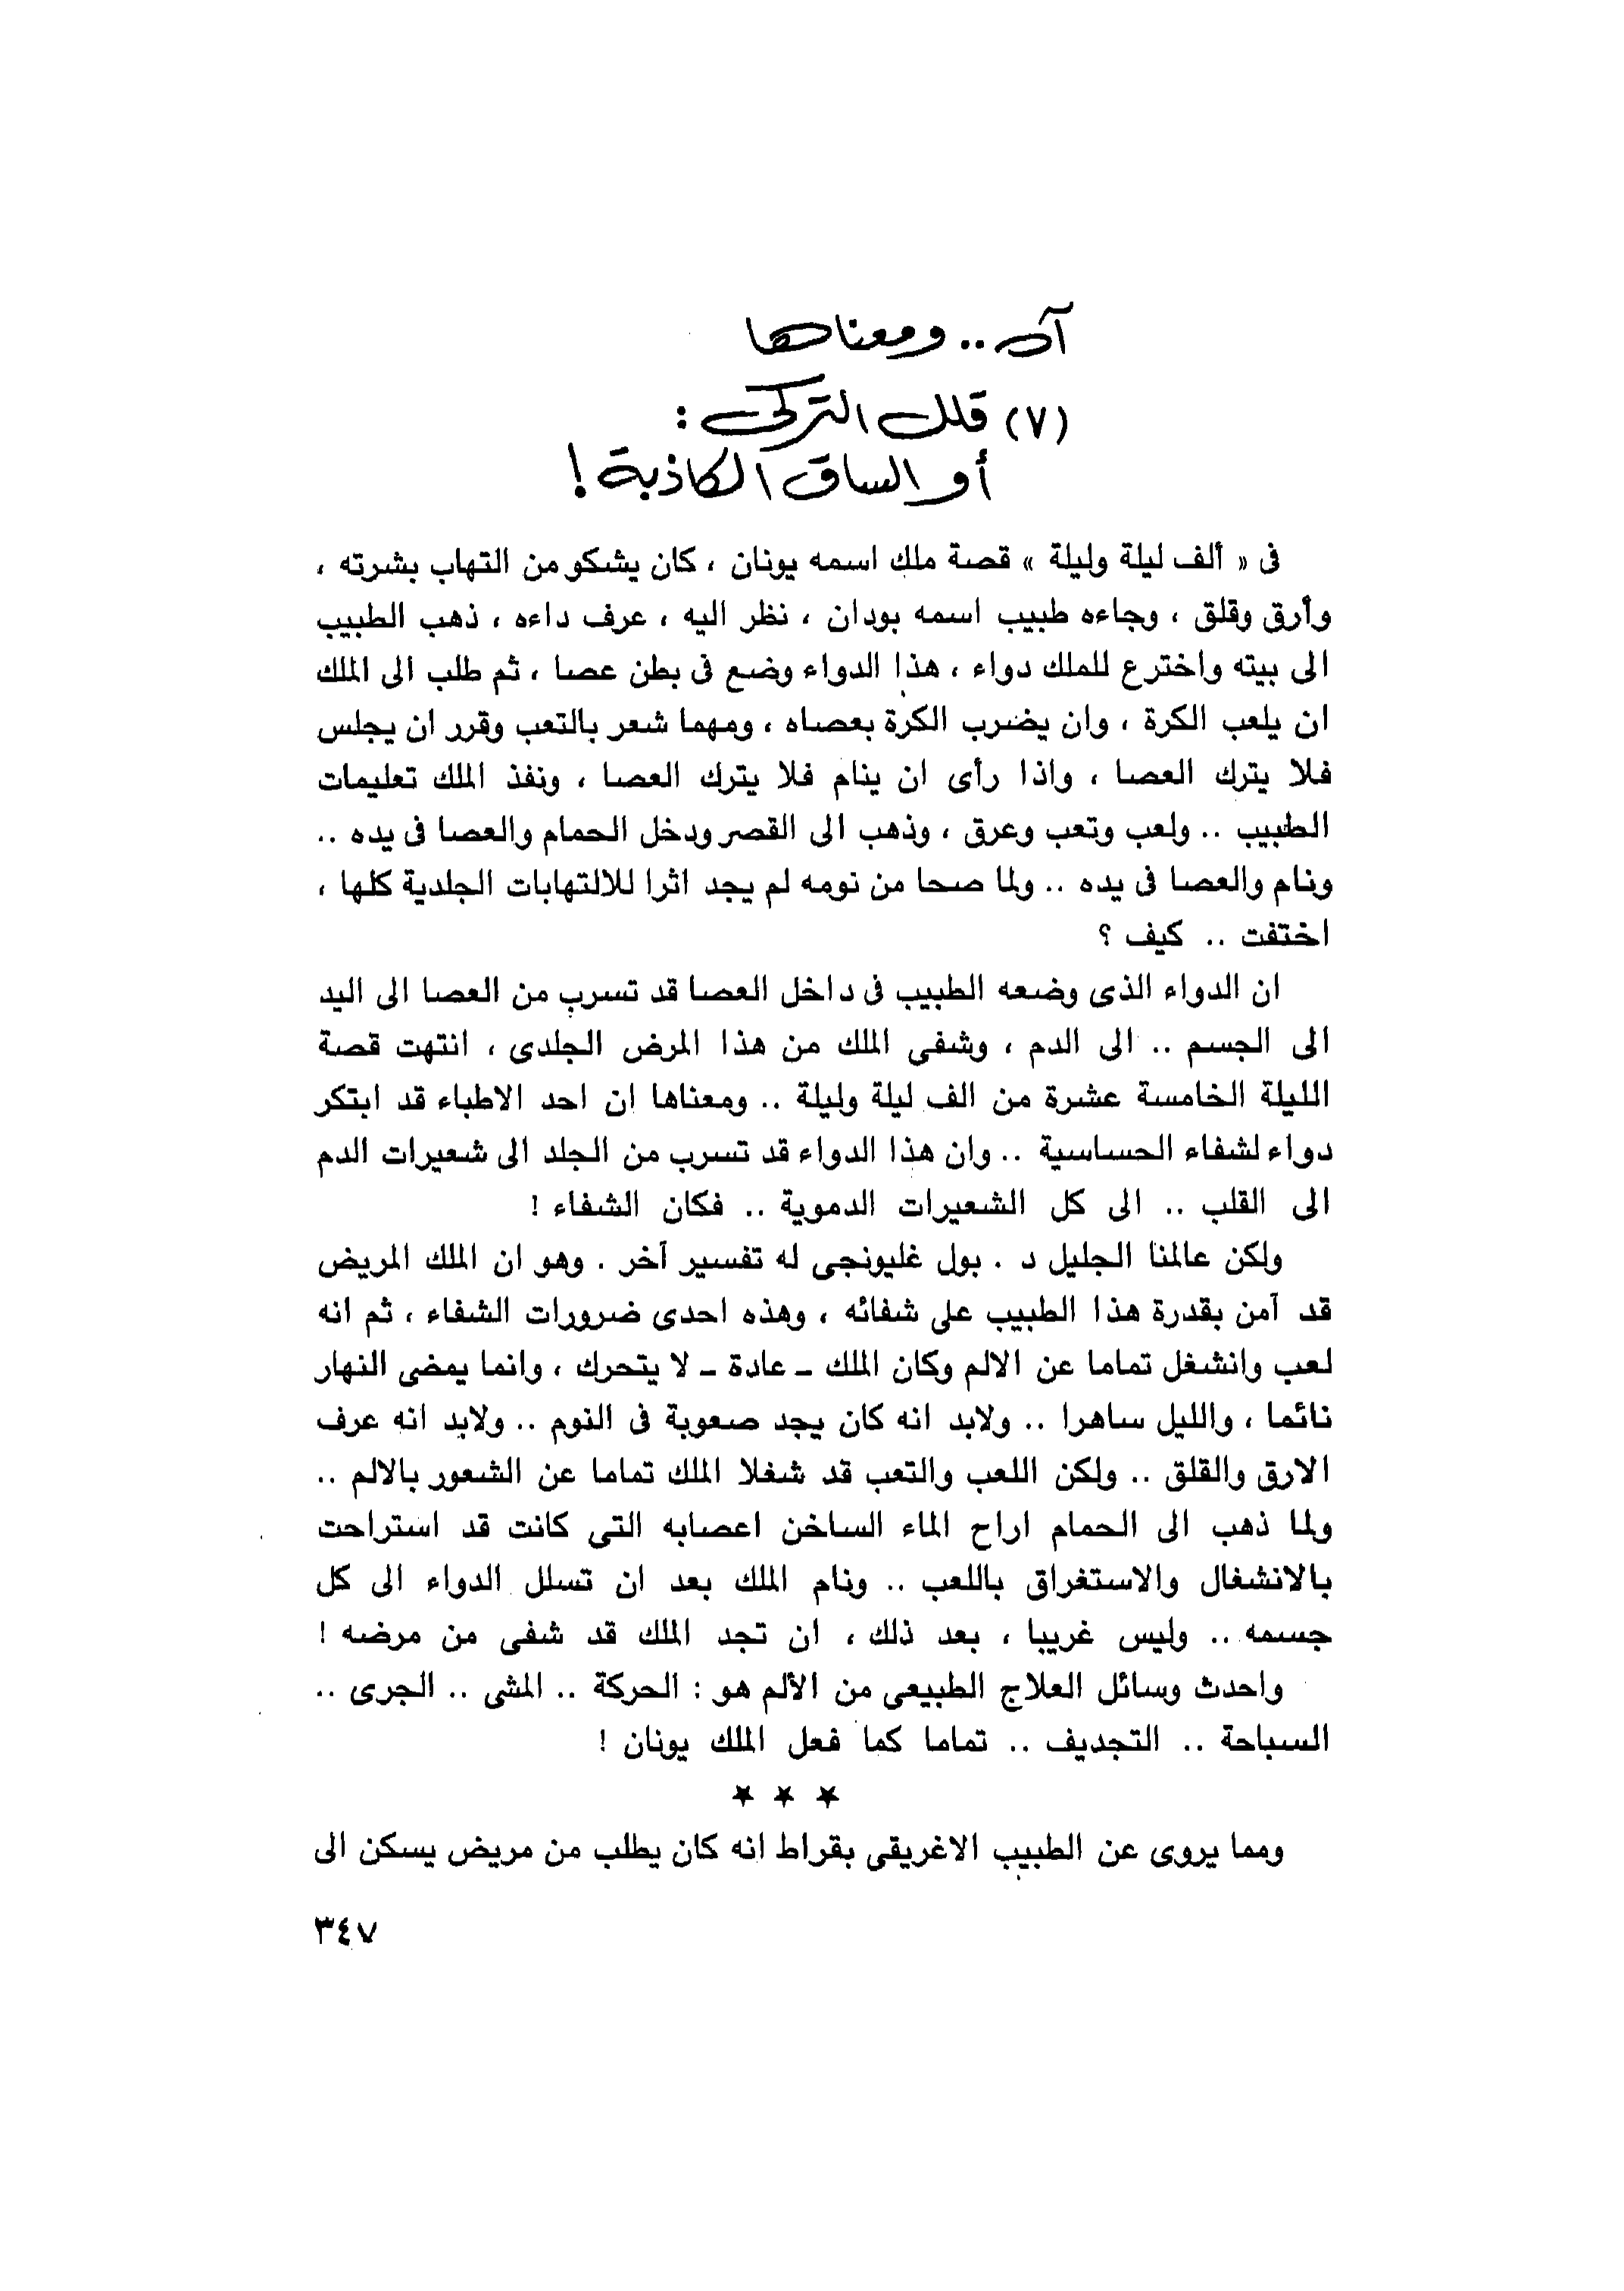 آه .. ومعناها
(٧) قلك التركى :
أو الساق الكاذبة !
فى « ألف ليلة وليلة » قصة ملك اسمه يونان ، كان يشكو من التهاب بشرته ،
وأرق وقلق ، وجاءه طبيب اسمه بودان ، نظر اليه ، عرف داءه ، ذهب الطبيب
الى بيته واخترع للملك دواء ، هذا الدواء وضع فى بطن عصا ، ثم طلب الى الملك
ان يلعب الكرة ، وان يضرب الكرة بعصاه ، ومهما شعر بالتعب وقرر ان يجلس
فلا يترك العصا ، واذا رأى ان ينام فلا يترك العصا ، ونفذ الملك تعليمات
الطبيب .. ولعب وتعب وعرق ، وذهب الى القصر ودخل الحمام والعصا فى يده ..
ونام والعصا فى يده .. ولما صحا من نومه لم يجد اثرا للالتهابات الجلدية كلها ،
اختفت .. كيف ؟
ان الدواء الذى وضعه الطبيب فى داخل العصا قد تسرب من العصا الى اليد
الى الجسم .. الى الدم ، وشفى الملك من هذا المرض الجلدى ، انتهت قصة
الليلة الخامسة عشرة من الف ليلة وليلة .. ومعناها ان احد الاطباء قد ابتكر
دواء لشفاء الحساسية .. وان هذا الدواء قد تسرب من الجلد الى شعيرات الدم
الى القلب .. الى كل الشعيرات الدموية .. فكان الشفاء !
ولكن عالمنا الجليل د . بول غليونجى له تفسير آخر . وهو ان الملك المريض
قد آمن بقدرة هذا الطبيب على شفائه ، وهذه احدى ضرورات الشفاء ، ثم انه
لعب وانشغل تماما عن الالم وكان الملك ـ عادة ـ لا يتحرك ، وانما يمضى النهار
نائما ، والليل ساهرا .. ولابد انه كان يجد صعوبة فى النوم .. ولابد انه عرف
الارق والقلق .. ولكن اللعب والتعب قد شغلا الملك تماما عن الشعور بالالم ..
ولما ذهب الى الحمام اراح الماء الساخن اعصابه التى كانت قد استراحت
بالانشغال والاستغراق باللعب .. ونام الملك بعد ان تسلل الدواء الى كل
جسمه .. وليس غريبا ، بعد ذلك ، ان تجد الملك قد شفى من مرضه !
واحدث وسائل العلاج الطبيعى من الألم هو : الحركة .. المشى .. الجرى ..
السباحة .. التجديف .. تماما كما فعل الملك يونان !
★ ★ ★
ومما يروى عن الطبيب الاغريقى بقراط انه كان يطلب من مريض يسكن الى
٣٤٧